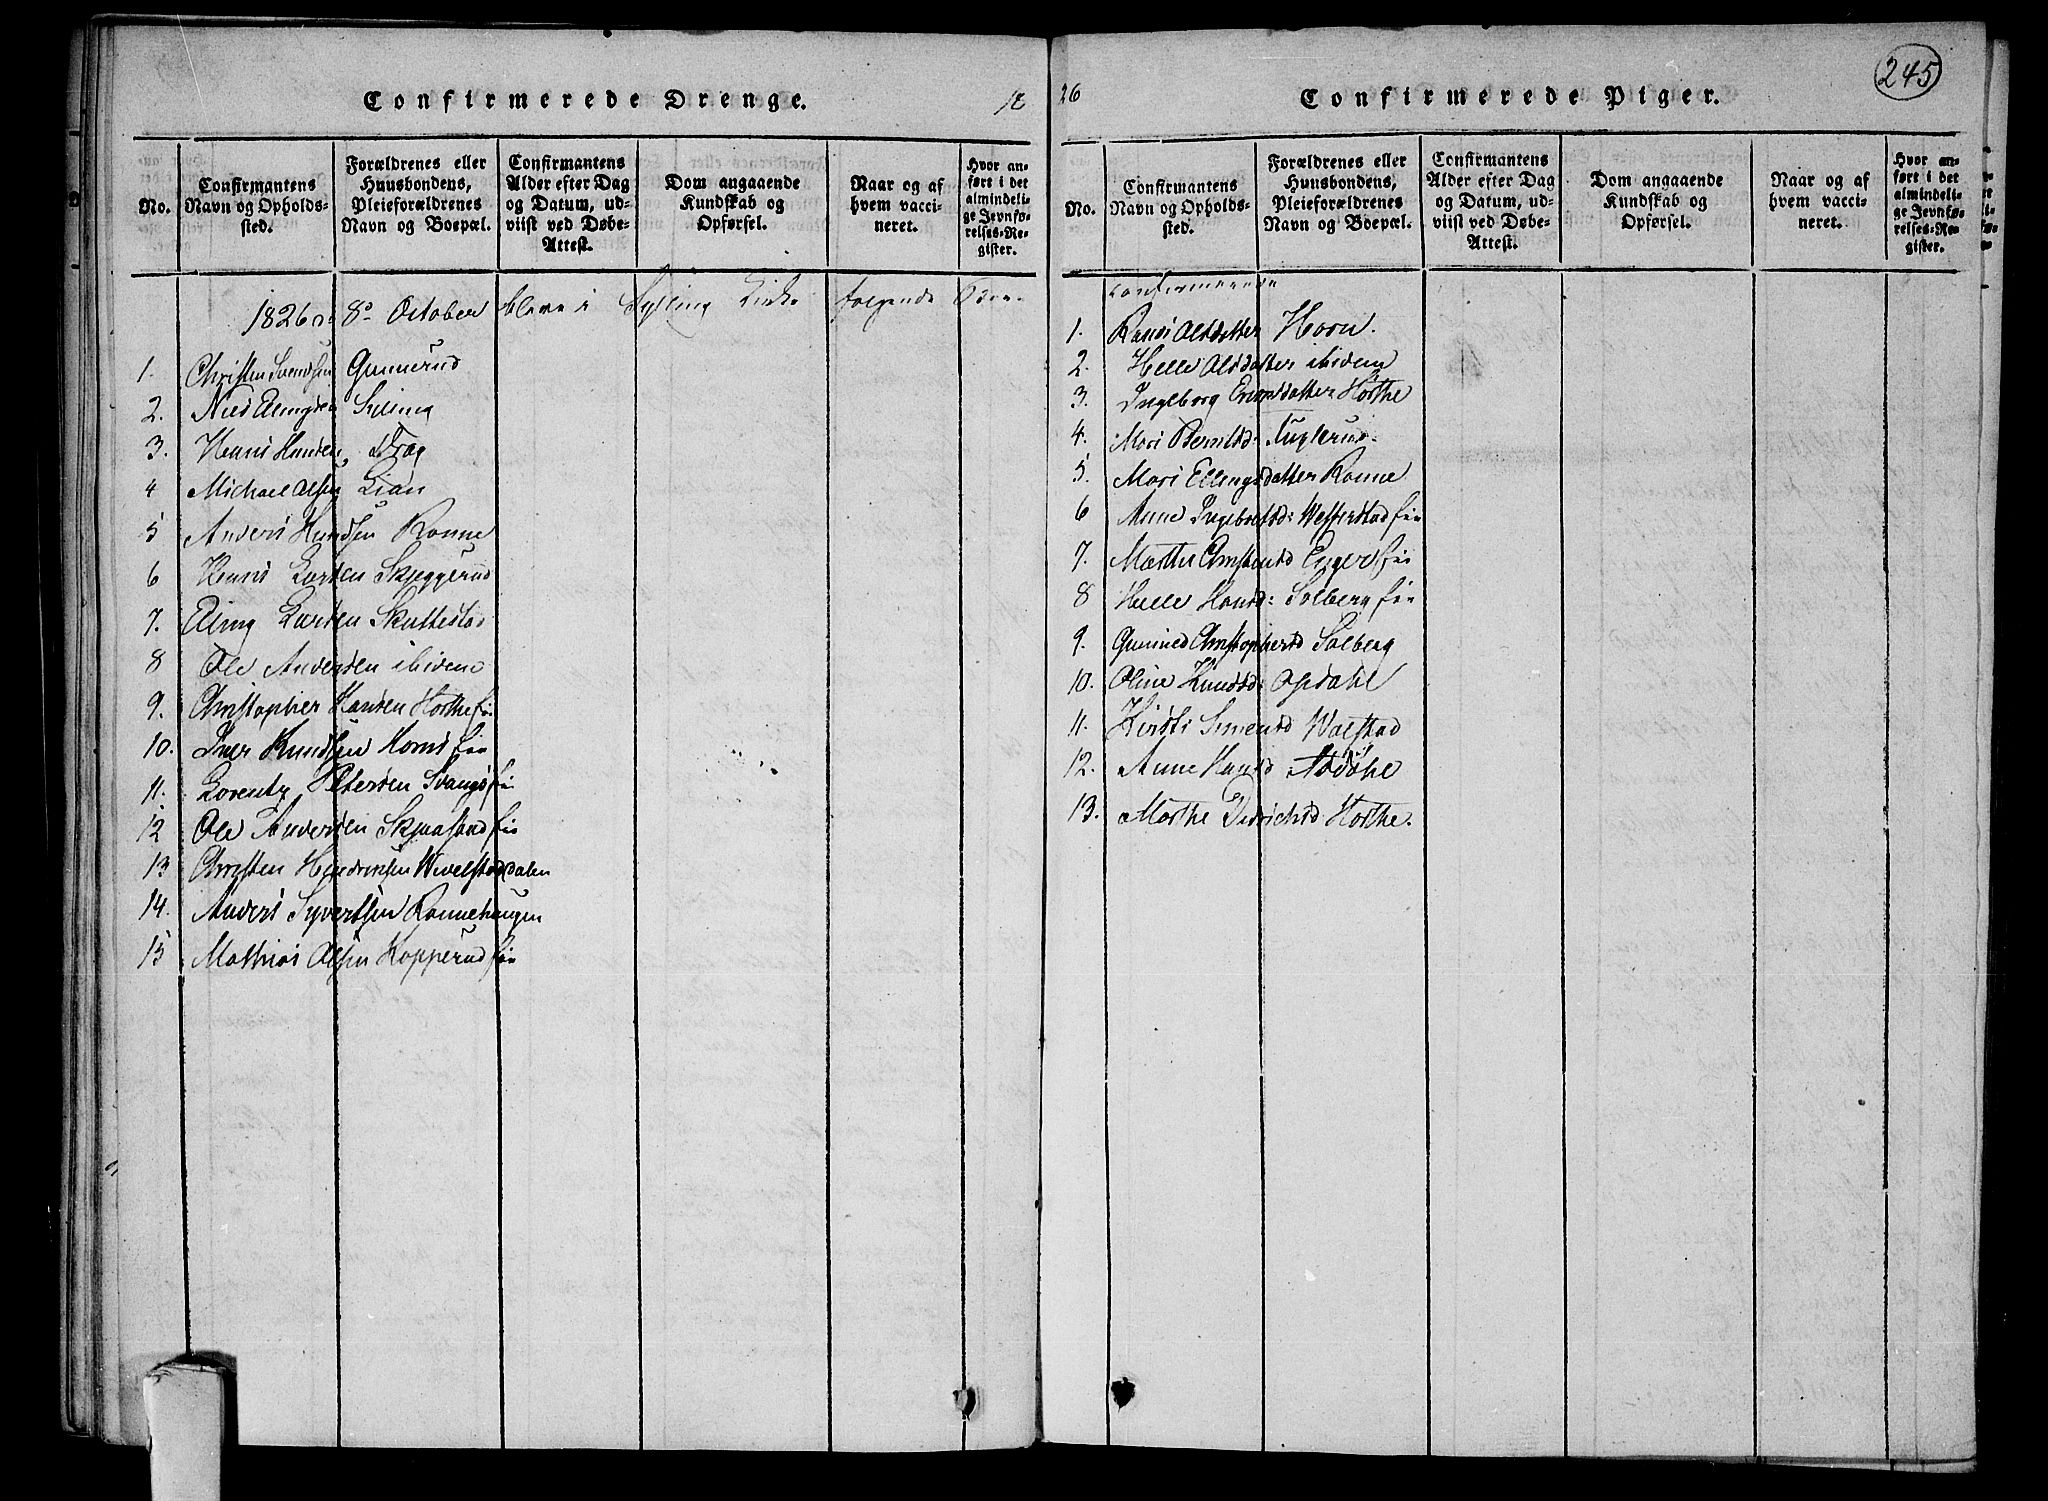 Confirmerede Drenge. 18
No.
Confirmantens Navn og Opholdssted.
Forældrenes eller Huusbondens, Pleieforældrenes Navn og Boepæl.
Confirmantens Alder efter Dag og Datum, udviist ved Døbe-Attest.
Dom angaaende Kundskab og Opførsel.
Naar og af hvem vaccineret.
Hvor anført i det almindelige Jevnførelses-Register.
1826 8d October bleve i Sylling Kirke følgende
1. Christen Svendsen Gunnerud
2. Niels Elingsen Sylling
3. Hans Hansen
4 Michael Olsen Lian
5 Anders Knudsen Ronne
6 Hans Larsen Skjeggerud
7. Eling Larsen Skuttestad
8 Ole Andersen ibidem
9. Christopher Hansen Horthe
10. Iver Knudsen Horns
11. Lorentz Petersen Svangs
12 Ole Andersen
13 Christen Hendrichsen Wivelstaddalen
14. Anders Syvertsen Ronnehaugen
15 Mathias Olsen Kopperud
26 Confirmerede Piger. 245
No.
Confirmantens Navn og Opholdssted.
Forældrenes eller Huusbondens, Pleieforældrenes Navn og Boepæl.
Confirmantens Alder efter Dag og Datum, udviist ved Døbe-Attest.
Dom angaaende Kundskab og Opførsel.
Naar og af hvem vaccineret.
Hvor anført i det almindelige Jevnførelses-Register.
confirmerede
1. Olsdatter Horn.
2. Helle Olsdatter ibidem
3. Ingeborg Horthe
4. Mari Berntsd: Fuglerud
5. Mari Ellingsdatter Ronne
6 Anne Ingebretsd:
7. Marthe Christensd Enger
8 Helle Hansd: Solberg
9. Gunild Christophersd Solberg
10. Oline Knudsd: Opdahl
11. Kirsti Simensd Walstad
12. Anne Hansd
13. Marthe Horthe.